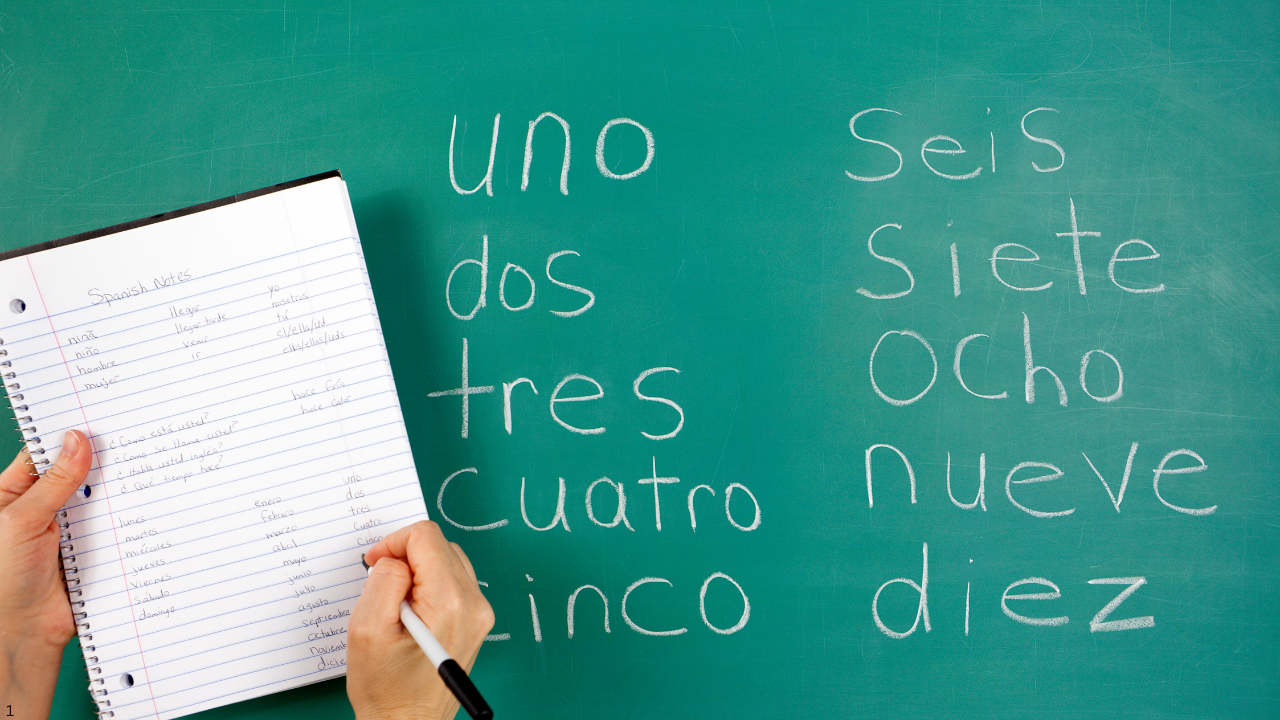 uno
dos
tres
cuatro
cinco
seis
siete
ocho
nueve
diez
Spanish Notes
ninã
niño
hombre
mujer
llegar
llegar tarde
venir
ir
yo
nosotros
tú
el/ella/ud
ellos/ellas/uds
hace frío
hace calor
¿Como está usted?
¿Como se llama usted?
¿Habla usted inglés?
¿Qué tiempo hace?
lunes
martes
miércoles
jueves
viernes
sábado
domingo
enero
febrero
marzo
abril
mayo
junio
julio
agosto
septiembre
octubre
uno
dos
tres
cuatro
cinco
1